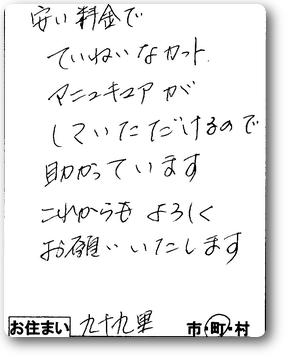 安い料金で
ていねいなカット
マニュキュアが
していただけるので
助かっています
これからも よろしく
お願いいたします
お住まい 九十九里 市・町・村